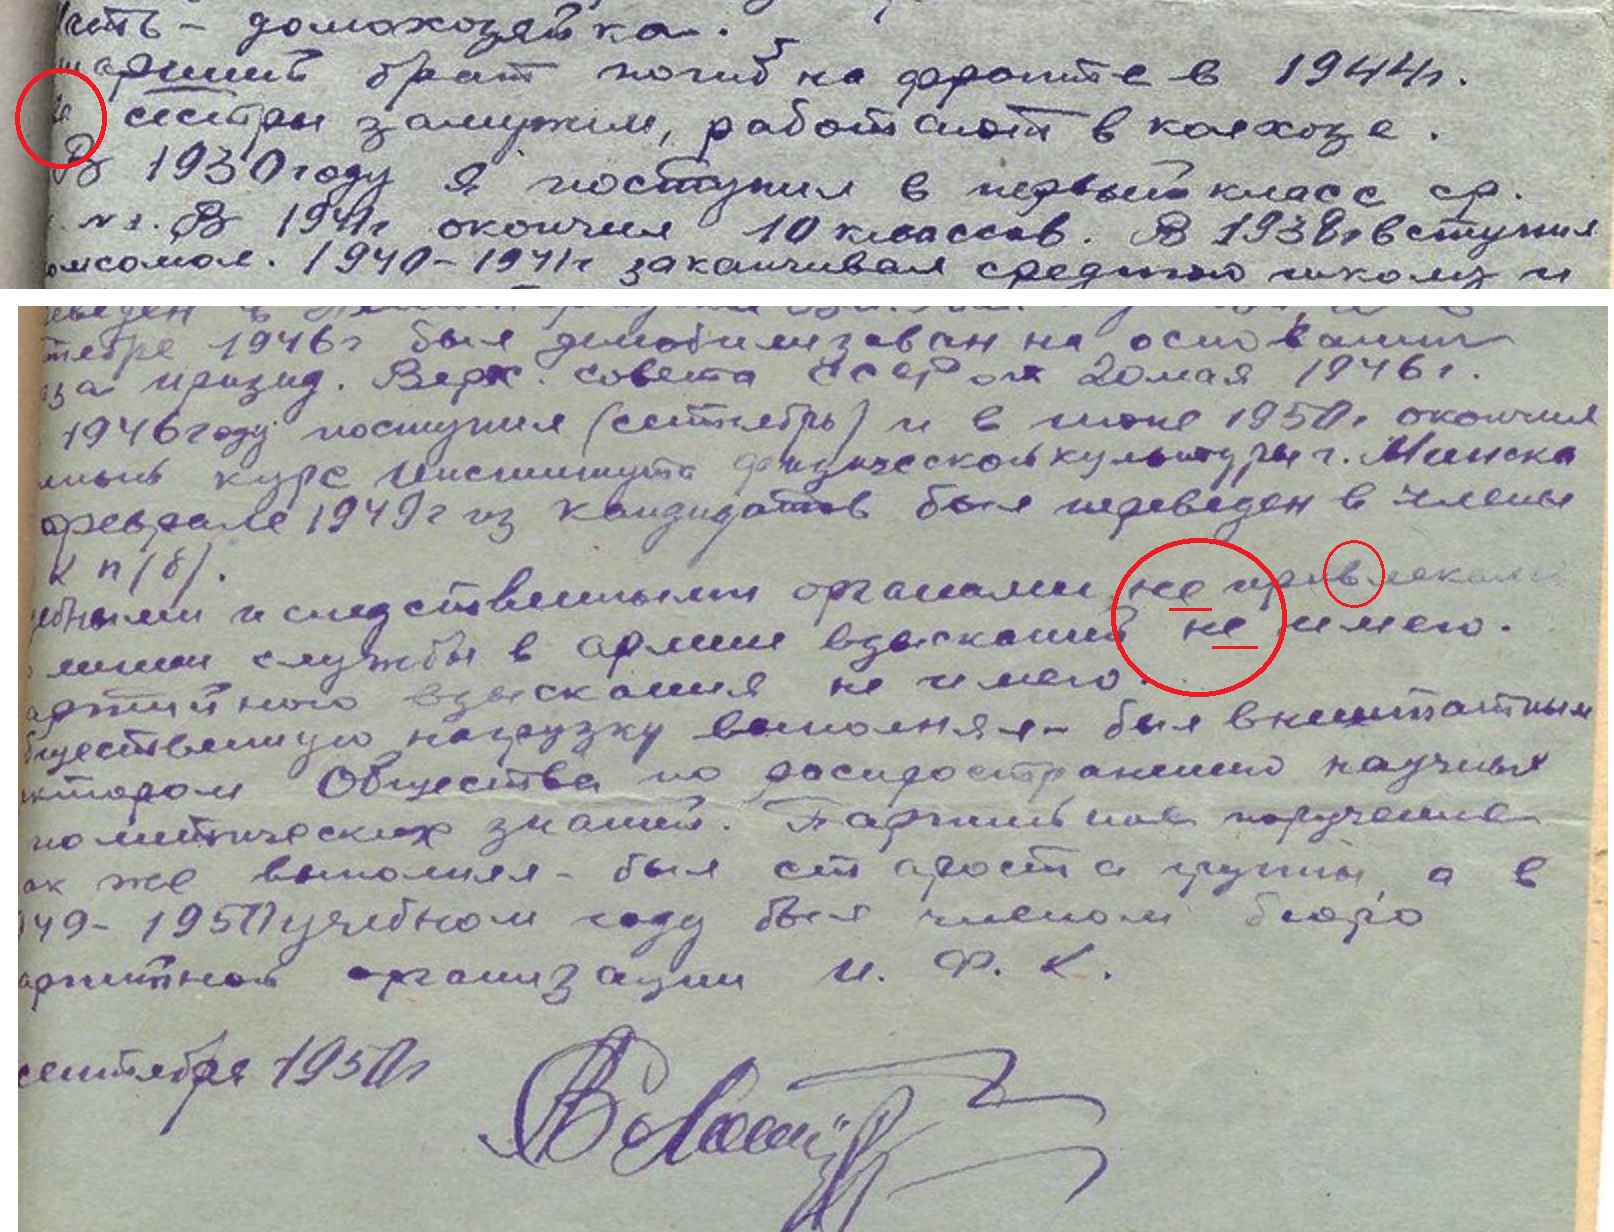 мать - домохозяйка.
тарший брат погиб на фронте в 1944г.
ве сестры замужем, работают в колхозе.
В 1930 году я поступил в первый класс ср.
№1. В 1941г окончил 10 классов. В 1938г вступил
омсомол. 1940-1941г заканчивал среднюю школу и
тябре 1946г был демобилизован на основании
аза призид. Верх. совета СССР от 20 мая 1946г.
1946 году поступил (сентябрь) и в июне 1950г. окончил
лный курс Института физической культуры г. Минска
феврале 1949г из кандидатов был переведен в члены
К П(б).
дебными и следственными органами не привлекался
службы в армии взысканий не имею.
артийного взыскания не имею.
бщественную нагрузку выполнял - был внештатным
ектором Общества по распространению научных
политических знаний. Партийные поручения
ак же выполнял - был староста группы, а в
949-1950 учебном году был членом бюро
артийной организации И. Ф. К.
сентября 1950г